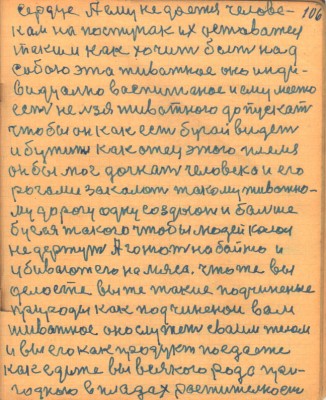 сердце А ему не дается челове- 106
кам на поступ так их оставатся
таким как хочит быть над
собою эта животное оно инди-
видуално воспитаное и ему место
есть не лзя животного допускать
чтобы он как есть бугай видеть
и бутит как отец этого племя
он бы мог догнать человека и его
рогами заколоть такому животно-
му дорогу одну создают и больше
бугая такого чтобы людей колол
не держут А гонют на бойню и
убивают его на мяса. что же вы
делаете вы же такие подчиненые
природы как подчиненои вам
животное оно служеть своим телом
и вы его как продукт поедаете
как едите вы всякого рода при-
годного в плодах растителности